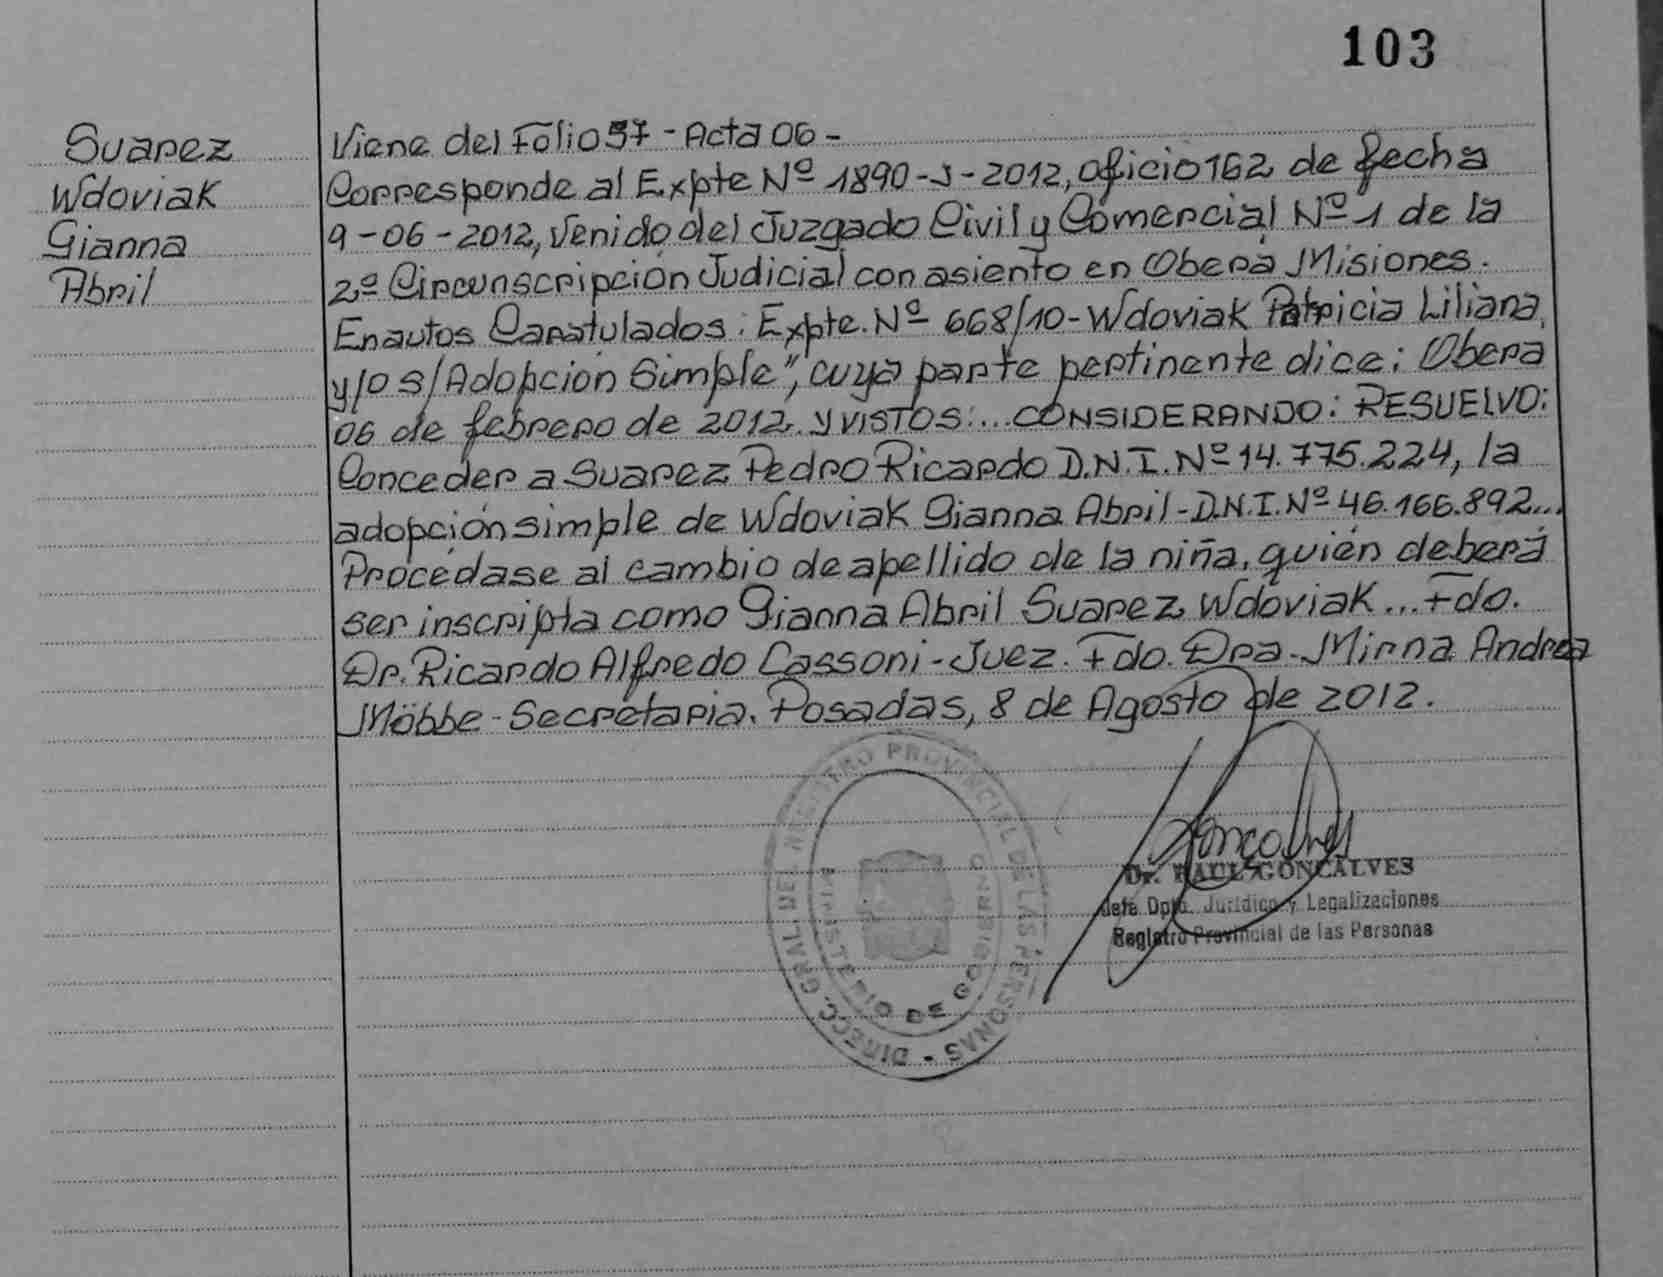 103
Suarez
Wdoviak
Gianna
Abril
Viene del Folio 57 - Acta 06 -
Corresponde al Expte Nº 1890-J-2012, oficio 162 de fecha
9-06-2012, venido del Juzgado Civil y Comercial Nº 1 de la
2º Circunscripción Judicial con asiento en Oberá Misiones.
En autos Caratulados: Expte. Nº 668/10 - Wdoviak Patricia Liliana
y/o s/Adopción Simple", cuya parte pertinente dice: Obera
06 de febrero de 2012. y VISTOS:... CONSIDERANDO: RESUELVO:
Conceder a Suarez Pedro Ricardo D.N.I. Nº 14.775.224, la
adopción simple de Wdoviak Gianna Abril - D.N.I. Nº 46.166.892...
Procédase al cambio de apellido de la niña, quién deberá
ser inscripta como Gianna Abril Suarez Wdoviak... Fdo.
Dr. Ricardo Alfredo Cassoni - Juez. Fdo. Dra. Mirna Andrea
Möbbe - Secretaria. Posadas, 8 de Agosto de 2012.
DIRECC. GRAL. DEL REGISTRO PROVINCIAL DE LAS PERSONAS -
MINISTERIO DE GOBIERNO
Goncalves
Dr. RAUL GONCALVES
Jefe Dpto. Jurídico y Legalizaciones
Registro Provincial de las Personas